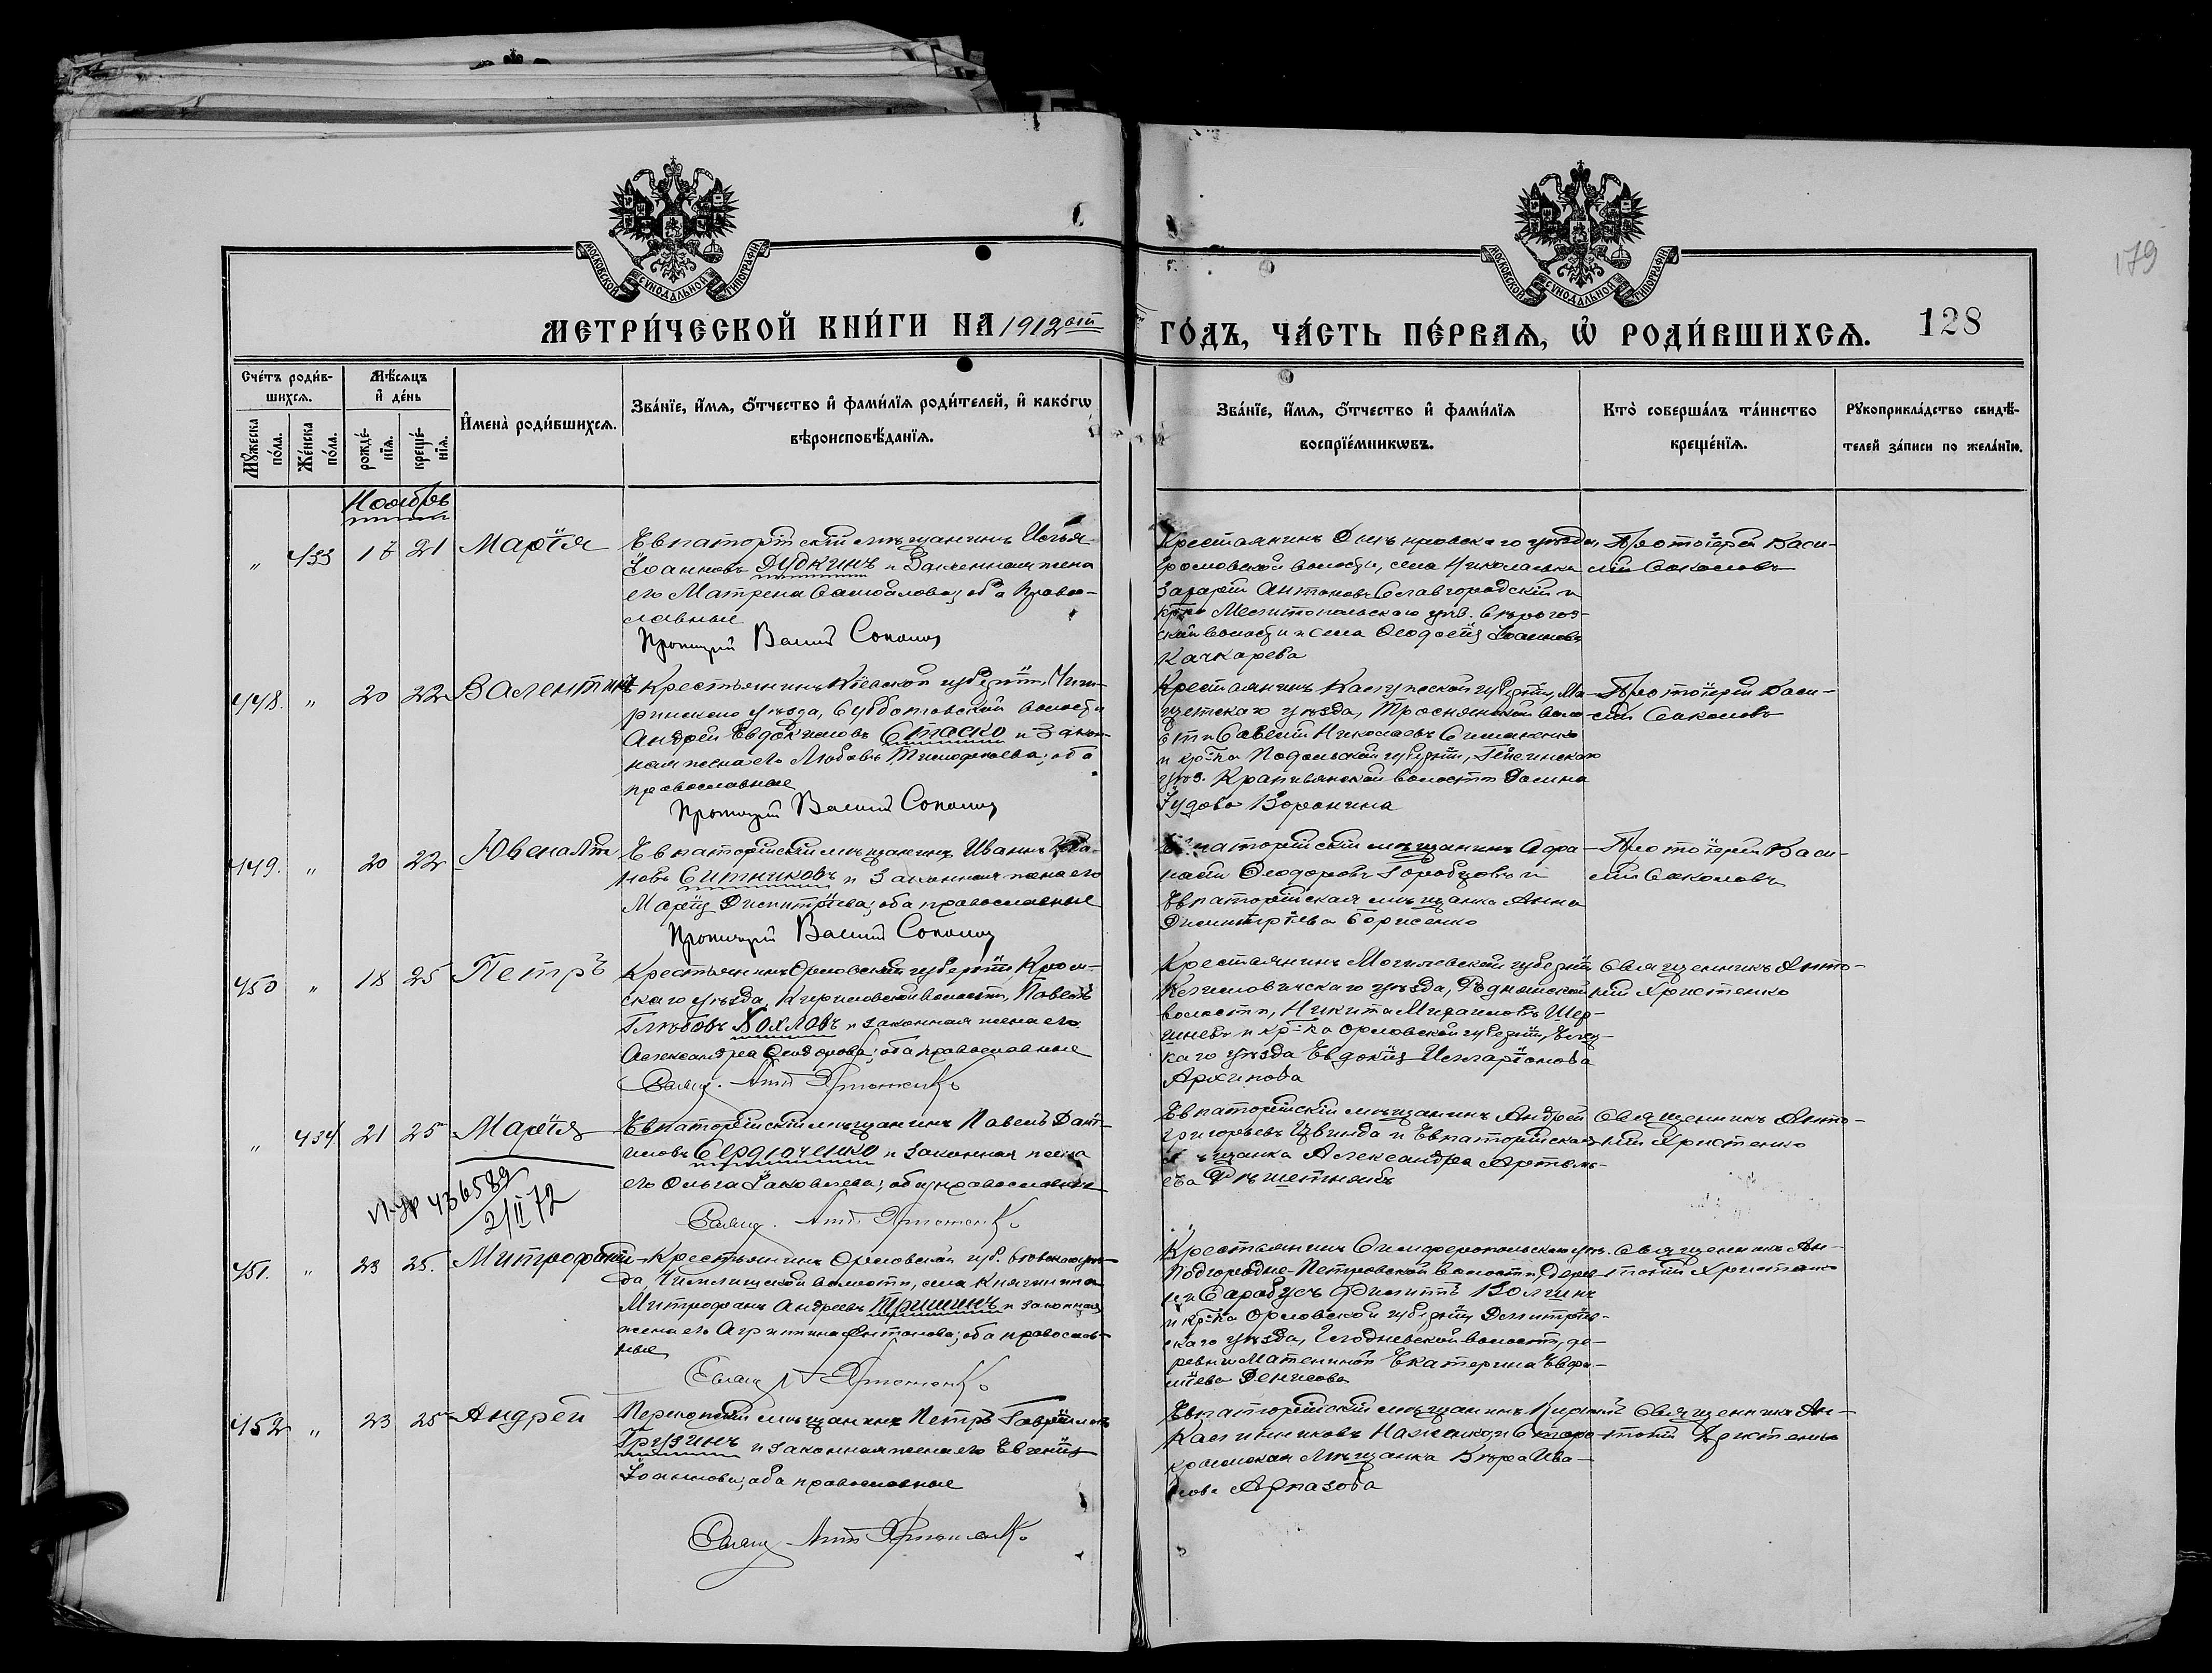 МОСКОВСКОЙ СѴНОДАЛЬНОЙ ТИПОГРАФІИ
МОСКОВСКОЙ СѴНОДАЛЬНОЙ ТИПОГРАФІИ
179
МЕТРИ́ЧЕСКОЙ КНИ́ГИ НА 1912ый
ГО́ДЪ, ЧА́СТЬ ПЕ́РВАЯ, Ѡ РОДИ́ВШИХСЯ.
128
Сче́тъ роди́в-
шихся.
Мꙋ́жеска по́ла.
Же́нска по́ла.
Мѣ́сяцъ
и҆ де́нь
рожде́-
нїя.
креще́-
нїя.
И҆мена̀ роди́вшихся.
Зва́нїе, и҆́мя, ѻ҆́тчество и҆ фами́лїя роди́телей, и҆ како́гѡ
вѣроисповѣ́данїя.
Зва́нїе, и҆́мя, ѻ҆́тчество и҆ фами́лїя
воспрїе́мникѡвъ.
Кто̀ соверша́лъ та́инство
креще́нїя.
Рꙋкоприкла́дство свидѣ́-
телей за́писи по жела́нїю.
Ноябрь
" 433 18 21 Марія
Евпаторійскій мѣщанинъ Илья
Іоанновъ Дудкинъ и законная жена
его Матрена Самойлова; оба право-
славные
Протоіерей Василій Соколовъ
Крестьянинъ Днѣпровскаго уѣзда,
волости, села Николаевка
Захарій Антоновъ Славгородскій и
Мелитопольскаго уѣз.
ской волости и села Ѳеодосія Іоаннова
Качкарева
Протоіерей Васи-
лій Соколовъ
448. " 20 22 Валентинъ
Крестьянинъ Кіевской губерніи, Чиги-
ринскаго уѣзда, Субботовской волости
Андрей Евдокимовъ Стаско и закон-
ная жена его Любовь Тимофеева; оба
православные
Протоіерей Василій Соколовъ
Крестьянинъ Калужской губерніи,
уѣзда, Троснянской воло-
сти Савелій Николаевъ Симаненко
и кр-ка Подольской губерніи,
уѣз. Крапивянской волости
Воронина
Протоіерей Васи-
лій Соколовъ
449. " 20 22 Ювеналій
Евпаторійскій мѣщанинъ Иванъ Ива-
новъ Ситниковъ и законная жена его
Марія Димитріева; оба православные
Протоіерей Василій Соколовъ
Евпаторійскій мѣщанинъ Афа-
насій Ѳеодоровъ Горобцовъ и
Евпаторійская мѣщанка Анна
Димитріева Борисенко
Протоіерей Васи-
лій Соколовъ
450 " 18 25 Петръ
Крестьянинъ Орловской губерніи, Кром-
скаго уѣзда, Кириловской волости, Павелъ
Глѣбовъ Хохловъ и законная жена его
Александра Ѳеодорова; оба православные
Свящ. Ант. Христенко
Крестьянинъ Могилевской губерніи
Климовичскаго уѣзда, Роднянской
волости, Никита Михаиловъ Шер-
шневъ и кр-ка Орловской губерніи, Елец-
каго уѣзда Евдокія Илларіонова
Архипова
Священникъ Анто-
ній Христенко
" 434 21 25 Марія
Евпаторійскій мѣщанинъ Павелъ Дани-
иловъ Сердюченко и законная жена
его Ольга Іаковлева; оба православные
Свящ. Ант. Христенко
436589
2/II 72
Евпаторійскій мѣщанинъ Андрей
Григорьевъ Цвинда и Евпаторійская
мѣщанка Александра Артемь-
ева Рѣшетнякъ
Священникъ Анто-
ній Христенко
451. " 23 25. Митрофанъ
Крестьянинъ Орловской губ. уѣз-
да, волости, села Княгинина
Митрофанъ Андреевъ Тришинъ и законная
жена его Агрипина Антонова; оба православ-
ные
Свящ. А Христенко
Крестьянинъ Симферопольскаго уѣз.
Подгородне-Петровской волости, дерев-
ни Сарабусъ Филиппъ Волгинъ
и кр-ка Орловской губерніи Дмитров-
скаго уѣзда, волости, де-
ревни Екатерина Евфи-
міева Денисова
Священникъ Ан-
тоній Христенко
452 " 23 25 Андрей
Перекопскій мѣщанинъ Петръ Гавріиловъ
Грузинъ и законная жена его Евгенія
Іоаннова; оба православные
Свящ. Ант. Христенко
Евпаторійскій мѣщанинъ
Калинниковъ и Старо-
крымская мѣщанка Вѣра Ива-
нова Арпазова
Священникъ Ан-
тоній Христенко